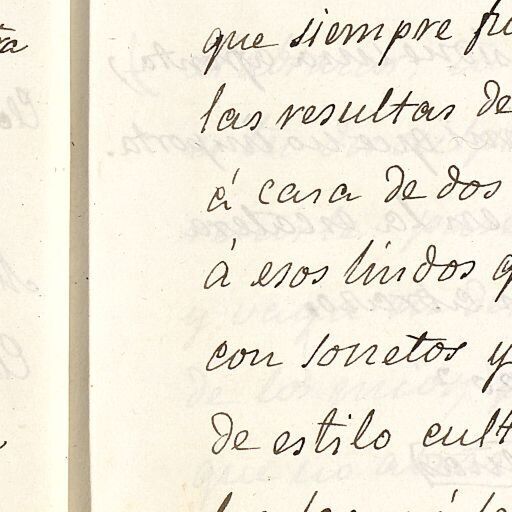 que siempre fu
las resultas de
á casa de dos
á esos lindos q
con sonetos y
de estilo cult